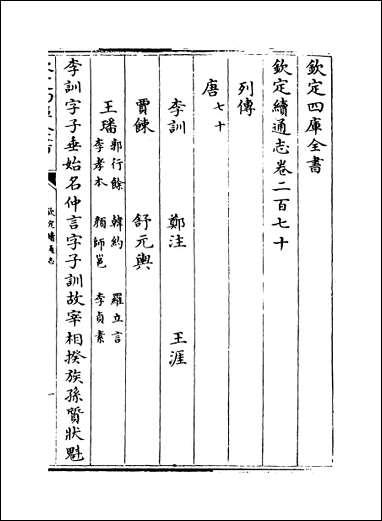 欽定四庫全書
欽定續通志卷二百七十
列傳
唐七十
李訓　鄭注　王涯
賈餗　舒元輿
王璠　郭行餘　韓約　羅立言
李孝本　顏師邕　李貞素
李訓字子垂始名仲言字子訓故宰相揆族孫質狀魁
欽定續通志
一